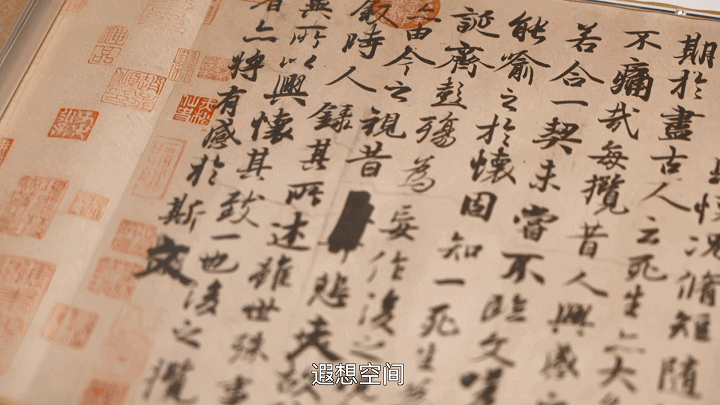 況脩短随
期於盡古人云死生亦大
不痛哉每攬昔人興感
若合一契未嘗不臨文嗟
能喻之於懷固知一死生為
誕齊彭殤為妄作後之
由今之視昔悲夫故
敘時人錄其所述雖世殊事
異所以興懷其致一也後之攬
者亦將有感於斯文
遐想空间